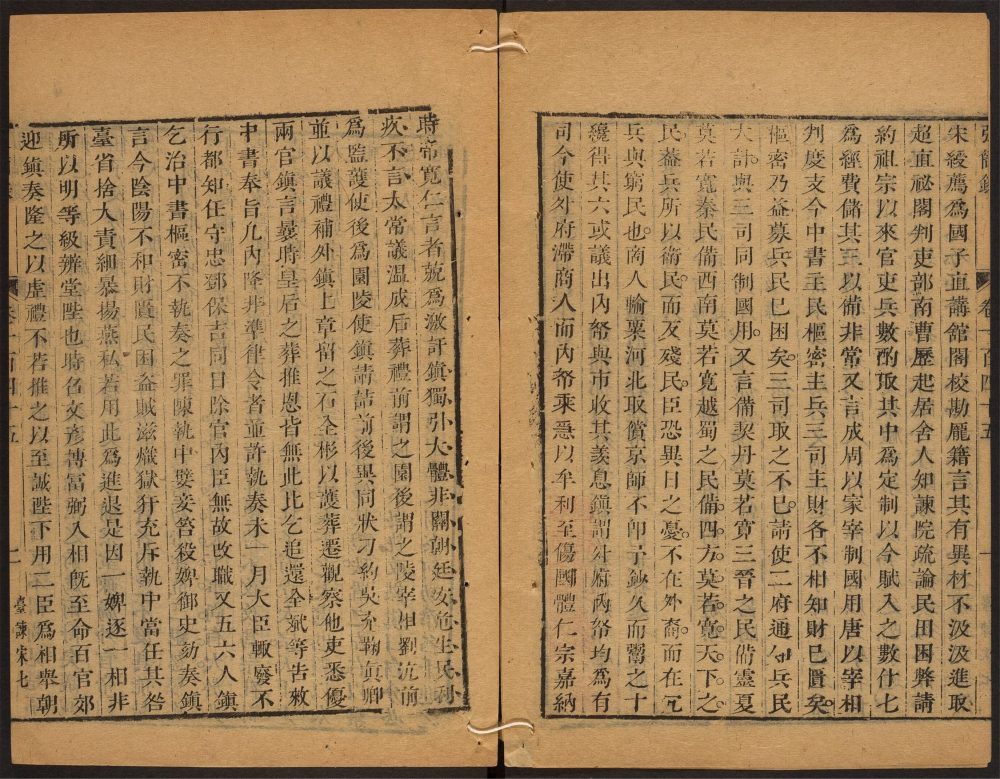 弘簡錄 卷一百四十五 一
宋綬薦爲國子直講館閣校勘龎籍言其有異材不汲汲進取
超直祕閣判吏部南曹歷起居舍人知諫院疏論民田困弊請
約祖宗以來官吏兵數酌取其中爲定制以今賦入之數什七
爲經費儲其三以備非常又言成周以冢宰制國用唐以宰相
判度支今中書主民樞密主兵三司主財各不相知財已匱矣
樞密乃益募兵民已困矣三司取之不已請使二府通知兵民
大計與三司同制國用又言備契丹莫若寬三晉之民備靈夏
莫若寬秦民備西南莫若寬越蜀之民備四方莫若寬天下之
民益兵所以衛民而反殘民臣恐異日之憂不在外裔而在冗
兵與窮民也商人輸粟河北取償京師不即予鈔久而鬻之十
纔得其六或議出內帑與市收其羨息鎮謂外府內帑均爲有
司今使外府滯商人而內帑乘急以牟利至傷國體仁宗嘉納
時帝寬仁言者競爲激訐鎮獨引大體非關朝廷安危生民利
疚不言太常議溫成后葬禮前謂之園後謂之陵宰相劉沆前
爲監護使後爲園陵使鎮請詰前後異同狀刁約吳充鞠眞卿
並以議禮補外鎮上章留之石全彬以護葬遷觀察他吏悉優
兩官鎮言曩時皇后之葬推恩皆無此比乞追還全斌等告敕
中書奉旨凡內降非準律令者並許執奏未一月大臣輒廢不
行都知任守忠鄧保吉同日除官內臣無故改職又五六人鎮
乞治中書樞密不執奏之罪陳執中嬖妾笞殺婢御史劾奏鎮
言今陰陽不和財匱民困盜賊滋熾獄犴充斥執中當任其咎
臺省捨大責細暴揚燕私若用此爲進退是因一婢逐一相非
所以明等級辨堂陛也時名文彥博富弼入相旣至命百官郊
迎鎮奏隆之以虛禮不若推之以至誠陛下用二臣爲相舉朝
卷一百四十五 一 臺諫宋七